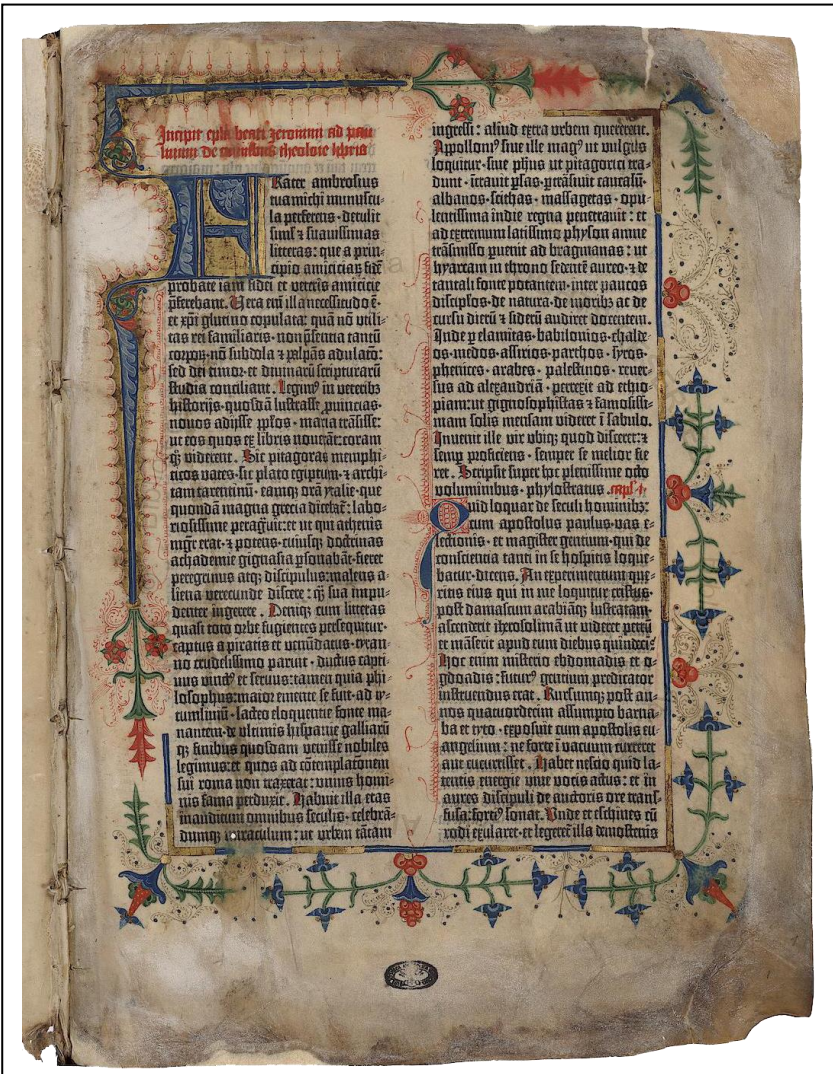 Incipit epl̃a beati Jeronimi ad pau
linum de omnibus
Frater ambrosius
tua michi munuscu-
la perferens · detulit
simł ⁊ suauissimas
litteras: que a prin-
cipio amiciciaꝝ fidē
probate iam fidei et veteris amicicie
p̃ferebant. Uera eni᷑ illa necessitudo ē·
et xp̃i glutino copulata: quā nō vtili-
tas rei familiaris· non p̃sentia tantū
corpoꝝ· nō subdola ⁊ palpās adulatō:
sed dei timor· et diuinarū scripturarū
studia conciliant. Legim᷒ in veteribꝫ
historijs· quosdā lustrasse ꝓuincias·
nouos adijsse ppłos· maria trāsisse:
ut eos quos ex libris nouerāt: coram
qꝫ viderent. Sic pitagoras memphi-
ticos vates· sic plato egiptum· ⁊ archi-
tam tarentinū· eamqꝫ orā ytalie· que
quondā magna grecia diceba᷑: labo-
riosissime peragͥuit: et ut qui athenis
mgr̃ erat· ⁊ potens· cuiusqꝫ doctrinas
achademie gignasia ꝑsonabāt· fieret
peregrinus atqꝫ discipulus: malens a-
liena verecunde discere: qͣꝫ sua impu-
denter ingerere. Deniqꝫ cum litteras
quasi toto orbe fugientes persequitur·
captus a piratis et venūdatus· tyran-
no crudelissimo paruit· ductus capti-
uus vinct᷒ et seruus: tamen quia phi-
losophus: maior emente se fuit· ad ty-
tum liuiū· lacteo eloquentie fonte ma-
nantem· de vltimis hispanie galliarū
qꝫ finibus quosdam venisse nobiles
legimus: et quos ad cōtemplatōnem
sui roma non traxerat: vnius homi-
nis fama perduxit. Habuit illa etas
inauditum omnibus seculis· celebrā-
dumqꝫ miraculum: ut vrbem tātam
ingressi: aliud extra vrbem quererent.
Apolloni᷒ siue ille mag᷒ ut vulgus
loquitur· siue phūs ut pitagorici tra-
dunt· ītrauit ꝑsas· ꝑtrāsiuit caucasū·
albanos· scithas· massagetas· opu-
lentissima indie regna penetrauit: et
ad extremum latissimo physon amne
trāsmisso ꝑuenit ad bragmanas: ut
hyarcam in throno sedentē aureo· ⁊ de
tantali fonte potantem· inter paucos
discipłos· de natura· de moribꝫ ac de
cursu dierū ⁊ siderū audiret docentem.
Inde ꝑ elamitas· babilonios· chalde-
os· medos· assirios· parthos· syros·
phenices· arabes· palestinos· reuer-
sus ad alexandriā· perrexit ad ethio-
piam: ut gignosophistas ⁊ famosissi-
mam solis mensam videret ī sabulo.
Inuenit ille vir vbiqꝫ quod disceret: ⁊
semꝑ proficiens· semper se melior fie-
ret. Scripsit super hoc plenissime octo
voluminibus· phylostratus.
Quid loquar de seculi hominibꝫ:
cum apostolus paulus· vas e-
lectionis· et magister gentium· qui de
conscientia tanti in se hospitis loque-
batur· dicens. An experimentum que-
ritis eius qui in me loquitur cristus·
post damascum arabiāqꝫ lustratam·
ascenderit iherosolimā ut videret petrū
et māserit apud eum diebus quindeci᷑·
Hoc enim misterio ebdomadis et o-
gdoadis: futur᷒ gentium predicator
instruendus erat. Rursumqꝫ post an-
nos quatuordecim assumpto barna-
ba et tyto· exposuit cum apostolis eu-
angelium: ne forte ī vacuum curreret
aut cucurrisset. Habet nescio quid la-
tentis energie viue vocis actus: et in
aures discipuli de auctoris ore trans-
fusa: forti᷒ sonat. Unde et eschines cū
rodi exularet· et legeret᷑ illa demostenis